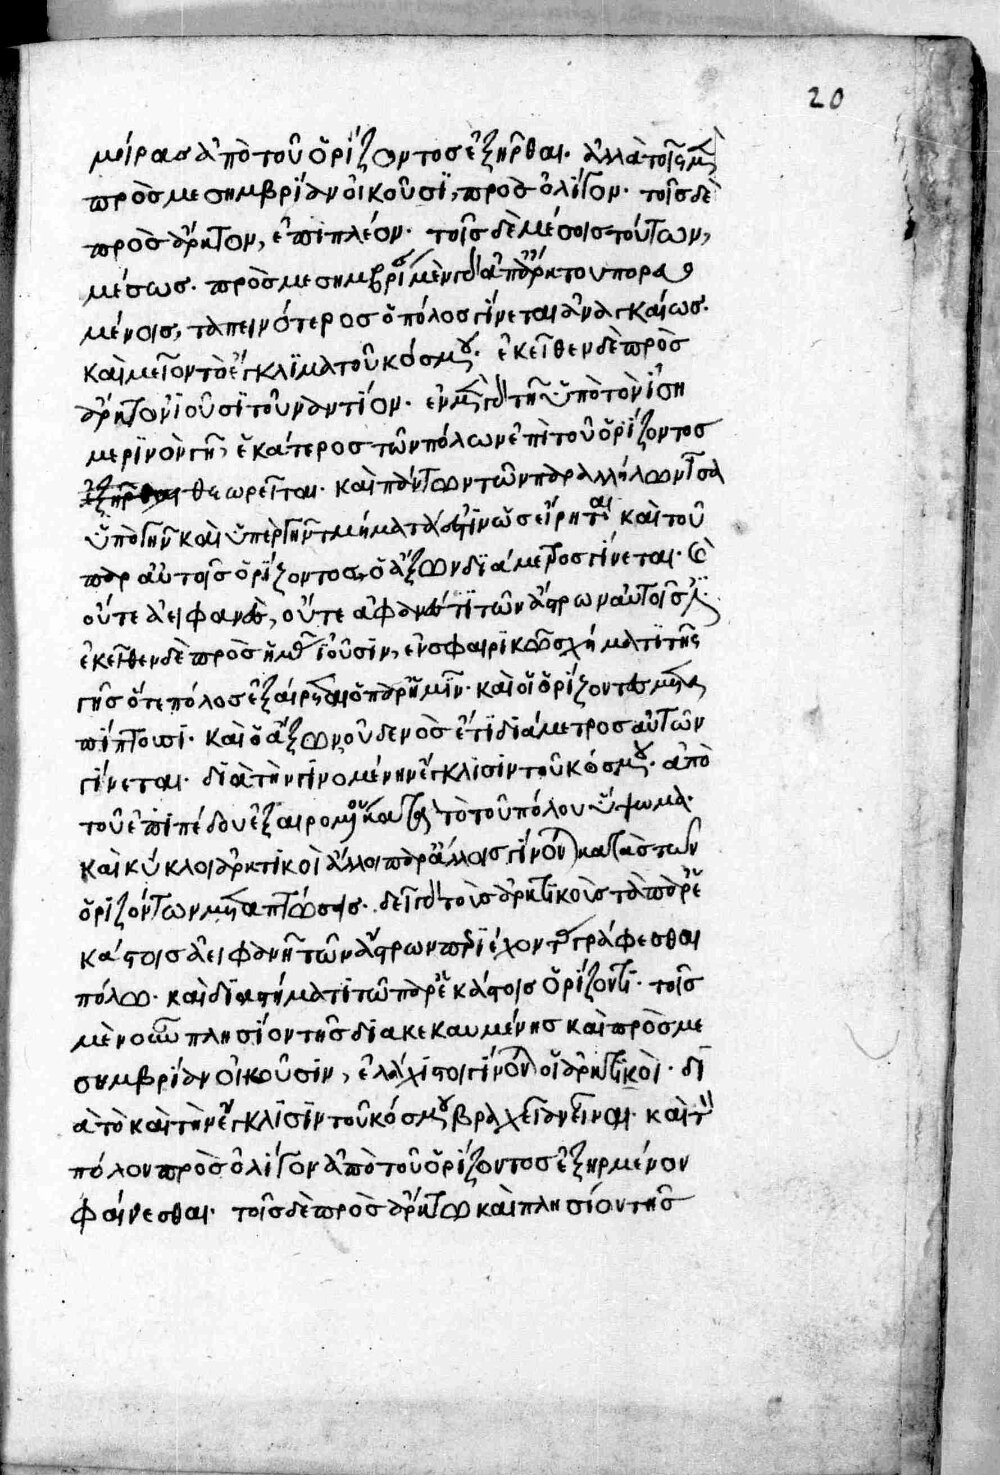 20
μοίρας ἀπὸ τοῦ ὁρίζοντος ἐξῆρθαι. ἀλλὰ τοῖς μὲν
πρὸς μεσημβρίαν οἰκοῦσι, πρὸς ὀλίγον. τοῖς δὲ
πρὸς ἄρκτον, ἐπιπλέον. τοῖς δὲ μέσοις τούτων,
μέσως. πρὸς μεσημβρίαν μὲν γὰρ ἀπ' ἄρκτου πορευ
μένοις, ταπεινότερος ὁ πόλος γίνεται ἀναγκαίως.
καὶ μεῖον τὸ ἔγκλιμα τοῦ κόσμου. ἐκεῖθεν δὲ πρὸς
ἄρκτον ἰοῦσι τοὐναντίον. ἐν μὲν γὰρ τῇ ὑπὸ τὸν ἰση
μερινὸν γῇ, ἑκάτερος τῶν πόλων ἐπὶ τοῦ ὁρίζοντος
ἐξῆρθαι θεωρεῖται. καὶ πάντων τῶν παραλλήλων ἴσα
ὑπὸ γῆν καὶ ὑπὲρ γῆν τμήματά ἐστιν ὡς εἴρηται καὶ τοῦ
παρ αὐτοῖς ὁρίζοντος, ὁ ἄξων διάμετρος γίνεται. καὶ
οὔτε ἀειφανὲς, οὔτε ἀφανές τι τῶν ἄστρων αὐτοῖς ἐστι.
ἐκεῖθεν δὲ πρὸς ἡμᾶς ἰοῦσιν, ἐν σφαιρικῶ σχήματι τῆς
γῆς ὅτε πόλος ἐξαίρεται ὁ παρ' ἡμῖν. καὶ οἱ ὁρίζοντες μετα
πίπτουσι. καὶ ὁ ἄξων οὐδενὸς ἔτι διάμετρος αὐτῶν
γίνεται. διὰ τὴν γινομένην ἔγκλισιν τοῦ κόσμου. ἀπὸ
τοῦ ἐπιπέδου ἐξαιρομένου κατὰ τὸ τοῦ πόλου ὕψωμα.
καὶ κύκλοι ἀρκτικοὶ ἄλλοι παρ' ἄλλοις γίνονται κατὰ τὰς τῶν
ὁριζόντων μεταπτώσεις. δεῖ γὰρ τοὺς ἀρκτικοὺς τὰ παρ' ἑ
κάστοις ἀειφανῆ τῶν ἄστρων περιέχοντας γράφεσθαι
πόλω. καὶ διαστήματι τῶ παρ' ἑκάστοις ὁρίζοντι. τοῖς
μὲν οὖν πλησίον τῆς διακεκαυμένης καὶ πρὸς με
σημβρίαν οἰκοῦσιν, ἐλάχιστοι γίνονται οἱ ἀρκτικοί. δι
ὰ τὸ καὶ τὴν ἔγκλισιν τοῦ κόσμου βραχεῖαν εἶναι. καὶ τὸν
πόλον πρὸς ὀλίγον ἀπὸ τοῦ ὁρίζοντος ἐξηρμένον
φαίνεσθαι. τοῖς δὲ πρὸς ἄρκτω καὶ πλησίον τῆς